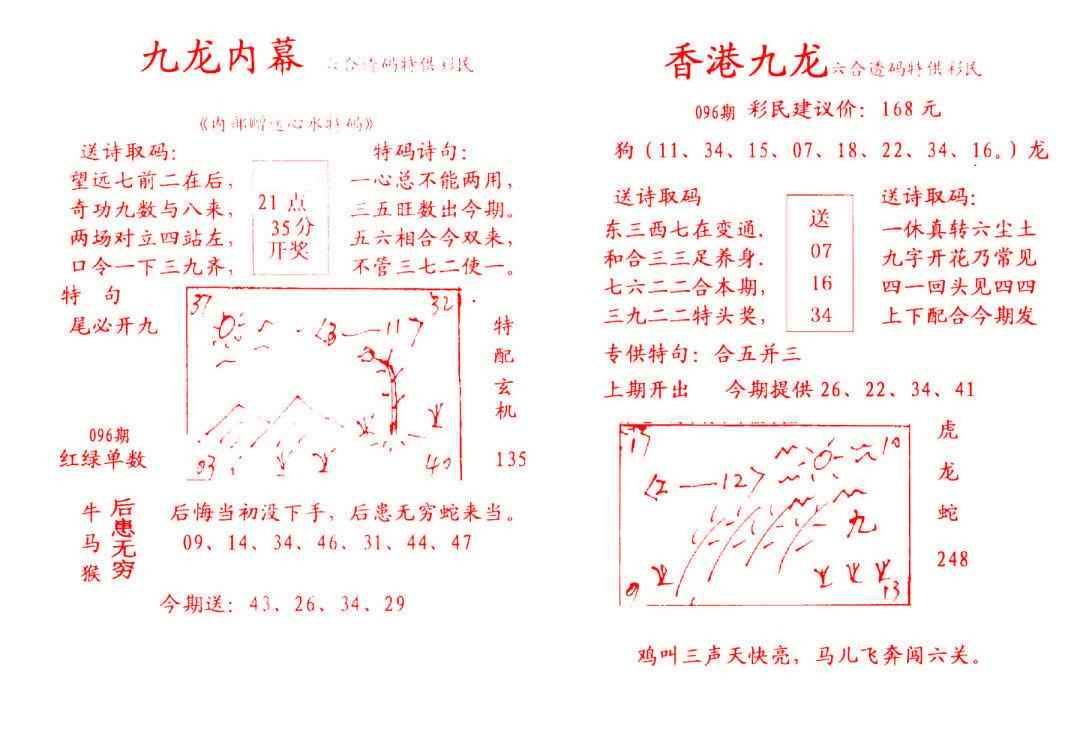 九龙内幕 六合透码特供彩民
《内部赠送心水特码》
送诗取码：
望远七前二在后，
奇功九数与八来，
两场对立四站左，
口令一下三九齐，
21 点
35分
开奖
特码诗句：
一心总不能两用，
三五旺数出今期。
五六相合今双来，
不管三七二使一。
特 句
尾必开九
096期
红绿单数
37
32
〈3—11〉
03
40
特
配
玄
机
135
牛
马
猴
后患无穷
后悔当初没下手，后患无穷蛇来当。
09、14、34、46、31、44、47
今期送：43、26、34、29
香港九龙 六合透码特供彩民
096期 彩民建议价：168 元
狗（11、34、15、07、18、22、34、16。）龙
送诗取码
东三西七在变通.
和合三三足养身.
七六二二合本期，
三九二二特头奖，
送
07
16
34
送诗取码：
一休真转六尘土
九字开花乃常见
四一回头见四四
上下配合今期发
专供特句：合五并三
上期开出 今期提供 26、22、34、41
10
〈2—12〉
九
13
虎
龙
蛇
248
鸡叫三声天快亮，马儿飞奔闯六关。